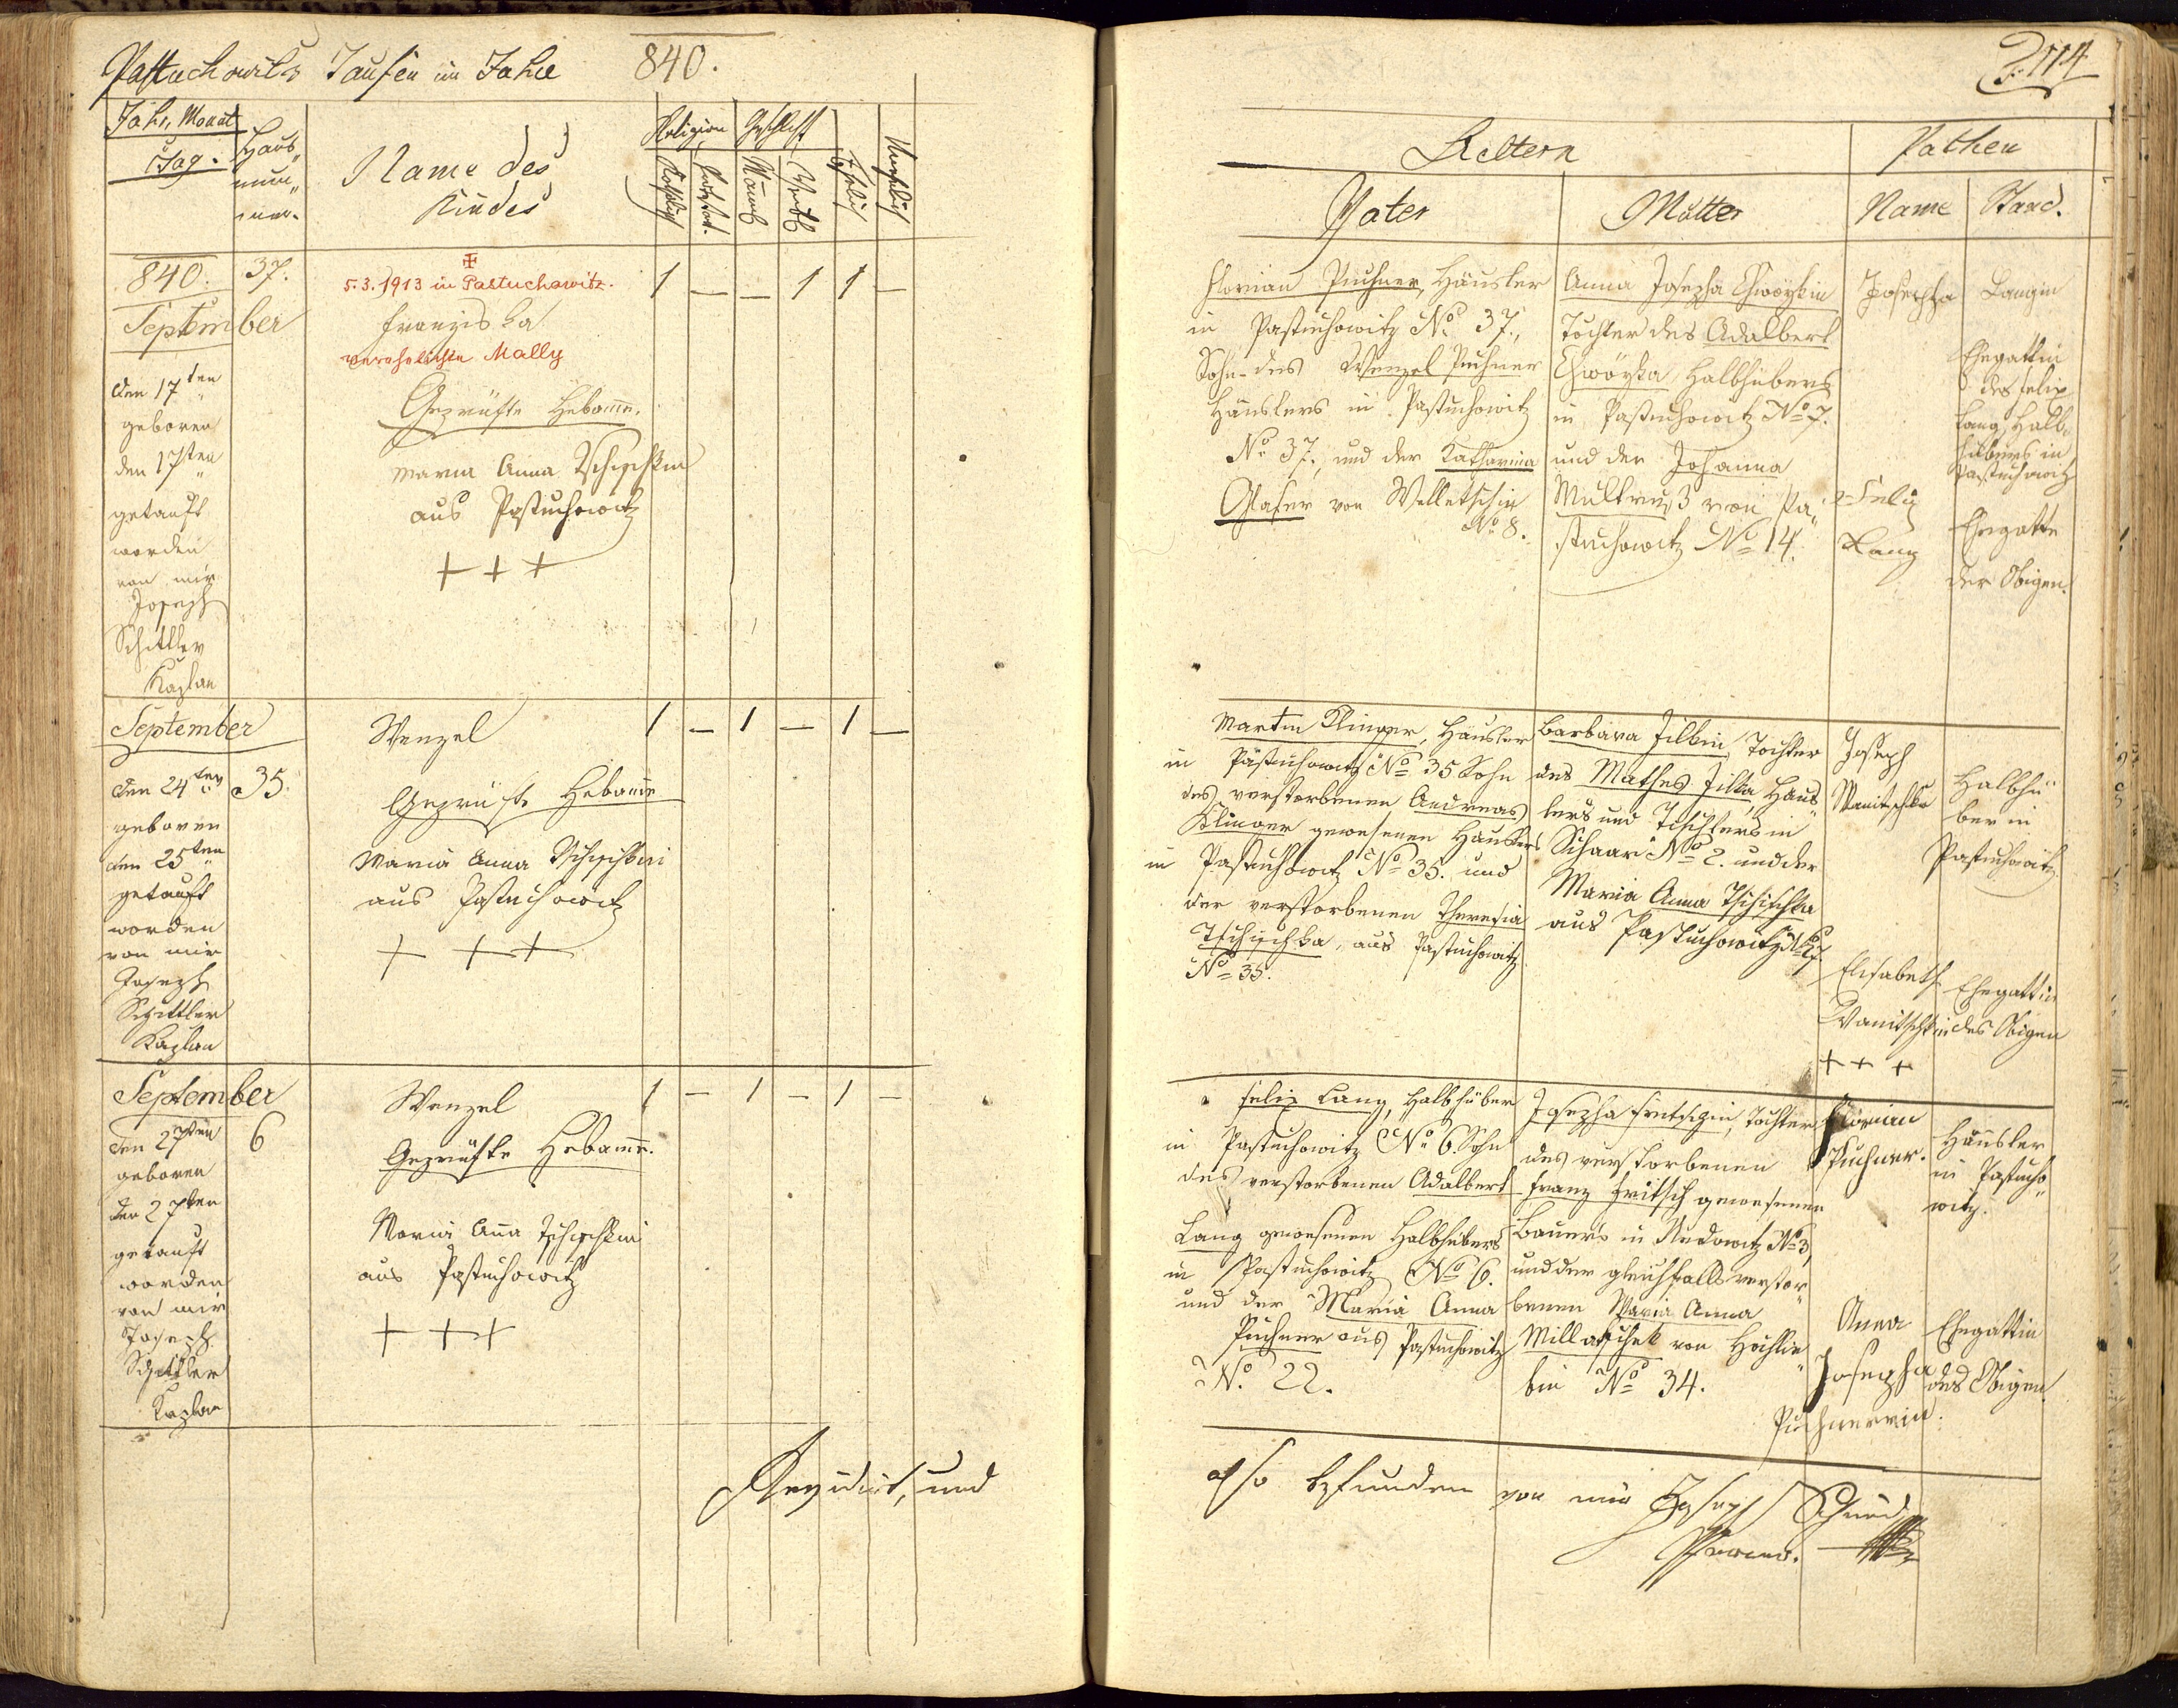 Pastuchowitz Taufen im Jahre 840.
Jahr, Monat
Tag.
Haus„
num„
mer.
Name des
Kindes
Religion
Geschlecht
Katholisch
Protestant.
Männl
Weibl
Ehelich
Unehelich
840.
37.
September
den 17ten
geboren
den 17ten
getauft
worden
von mir
Joseph
Schittler
Kaplan
5.3.1913 in Pastuchowitz.
Franziska
verehelichte Mally
Geprüfte Hebamme.
Maria Anna Tschischkin
aus Pastuchowitz
+++
1 — — 1 1 —
September
den 24ten 35.
geboren
den 25ten
getauft
worden
von mir
Joseph
Schittler
Kaplan
Wenzel
Geprüfte Hebamme
Maria Anna Tschischkin
aus Pastuchowitz
+ + +
1 — 1 — 1 —
September
den 27ten 6
geboren
den 27ten
getauft
worden
von mir
Joseph
Schittler
Kaplan
Wenzel
Geprüfte Hebamme.
Maria Anna Tschischkin
aus Pastuchowitz
+ + +
1 — 1 — 1 —
Revidirt, und
114
Aeltern
Pathen
Vater
Mutter
Name
Stand.
Florian Puchner, Häusler
in Pastuchowitz No 37.,
Sohn des Wenzel Puchner
Häuslers in Pastuchowitz
No 37., und der Katharina
Glaser von Welletschin
No 8.
Anna Josepha
Tochter des Adalbert
Halbhübers
in Pastuchowitz No 7.
und der Johanna
von Pa„
stuchowitz No 14.
Josepha
Langin
Ehegattin
des Felix
Lang, Halb„
hübers in
Pastuchowitz
Felix
Lang
Ehegatte
der Obigen.
Martin Klinger, Häusler
in Pastuchowitz No 35 Sohn
des verstorbenen Andreas
Klinger gewesenen Häuslers
in Pastuchowitz No 35. und
der verstorbenen Theresia
Tschischka, aus Pastuchowitz
No 35.
Barbara Jilkin, Tochter
des Mathes Jilka, Häus„
lers und Tischlers in
Schaar No 2. und der
Maria Anna Tschischka
aus Pastuchowitz No 27.
Joseph
Wanitschka
Halbhü„
ber in
Pastuchowitz
Elisabeth
Wanitschkin
Ehegattin
des Obigen
+ + +
Felix Lang, Halbhüber
in Pastuchowitz No 6. Sohn
des verstorbenen Adalbert
Lang gewesenen Halbhübers
in Pastuchowitz No 6.
und der Maria Anna
Puchner aus Pastuchowitz
No. 22.
Josepha Fritschin, Tochter
des verstorbenen
Franz Fritsch gewesenen
Bauers in Nedowitz No 3,
und der gleichfalls verstor„
benen Maria Anna
Millatschek von Hochlie„
bin No 34.
Florian
Puchner.
Häusler
in Pastucho„
witz.
Anna
Josepha
Puchnerin.
Ehegattin
des Obigen
also befunden von mir Joseph Schmid
Pfarrer.